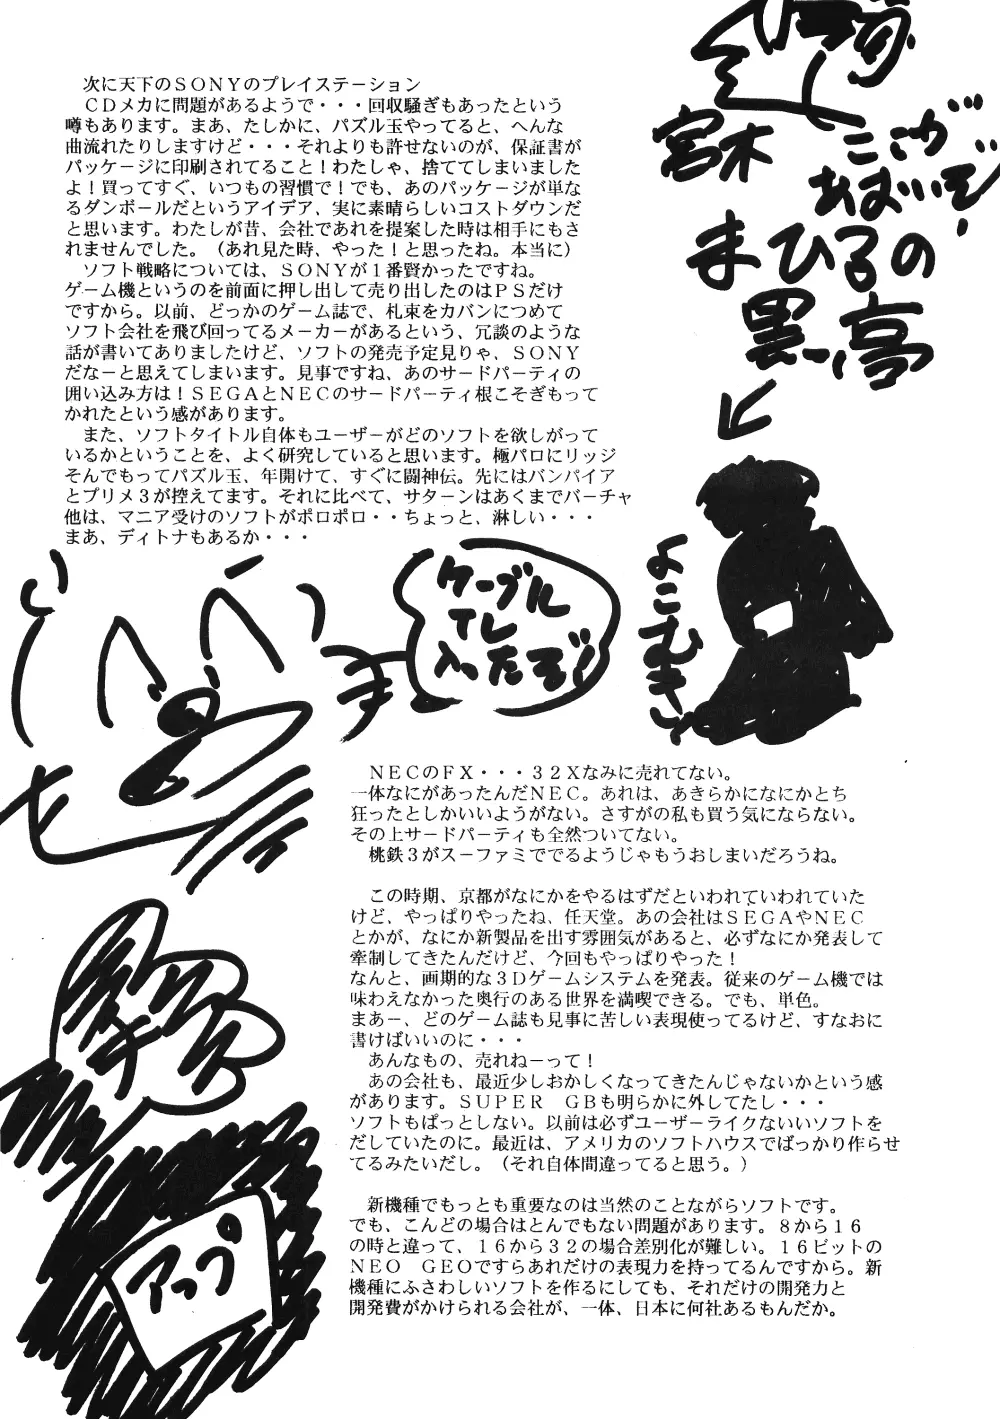 次に天下のＳＯＮＹのプレイステーション
ＣＤメカに問題があるようで・・・回収騒ぎもあったという
噂もあります。まあ、たしかに、パズル玉やってると、へんな
曲流れたりしますけど・・・それよりも許せないのが、保証書が
パッケージに印刷されてること！わたしゃ、捨ててしまいました
よ！買ってすぐ、いつもの習慣で！でも、あのパッケージが単な
るダンボールだというアイデア、実に素晴らしいコストダウンだ
と思います。わたしが昔、会社であれを提案した時は相手にもさ
れませんでした。（あれ見た時、やった！と思ったね。本当に）
ソフト戦略については、ＳＯＮＹが１番賢かったですね。
ゲーム機というのを前面に押し出して売り出したのはＰＳだけ
ですから。以前、どっかのゲーム誌で、札束をカバンにつめて
ソフト会社を飛び回ってるメーカーがあるという、冗談のような
話が書いてありましたけど、ソフトの発売予定見りゃ、ＳＯＮＹ
だなーと思えてしまいます。見事ですね、あのサードパーティの
囲い込み方は！ＳＥＧＡとＮＥＣのサードパーティ根こそぎもって
かれたという感があります。
また、ソフトタイトル自体もユーザーがどのソフトを欲しがって
いるかということを、よく研究していると思います。極パロにリッジ
そんでもってパズル玉、年開けて、すぐに闘神伝。先にはバンパイア
とプリメ３が控えてます。それに比べて、サターンはあくまでバーチャ
他は、マニア受けのソフトがポロポロ・・ちょっと、淋しい・・・
まあ、ディトナもあるか・・・
宮木
ここが
あまいぞ！
まひるの
黒亭
よこむき
ケーブル
ＴＬ
入ったぞ！
ＮＥＣのＦＸ・・・３２Ｘなみに売れてない。
一体なにがあったんだＮＥＣ。あれは、あきらかになにかとち
狂ったとしかいいようがない。さすがの私も買う気にならない。
その上サードパーティも全然ついてない。
桃鉄３がスーファミででるようじゃもうおしまいだろうね。
この時期、京都がなにかをやるはずだといわれていわれていた
けど、やっぱりやったね、任天堂。あの会社はＳＥＧＡやＮＥＣ
とかが、なにか新製品を出す雰囲気があると、必ずなにか発表して
牽制してきたんだけど、今回もやっぱりやった！
なんと、画期的な３Ｄゲームシステムを発表。従来のゲーム機では
味わえなかった奥行のある世界を満喫できる。でも、単色。
まあー、どのゲーム誌も見事に苦しい表現使ってるけど、すなおに
書けばいいのに・・・
あんなもの、売れねーって！
あの会社も、最近少しおかしくなってきたんじゃないかという感
があります。ＳＵＰＥＲ　ＧＢも明らかに外してたし・・・
ソフトもぱっとしない。以前は必ずユーザーライクないいソフトを
だしていたのに。最近は、アメリカのソフトハウスでばっかり作らせ
てるみたいだし。（それ自体間違ってると思う。）
新機種でもっとも重要なのは当然のことながらソフトです。
でも、こんどの場合はとんでもない問題があります。８から１６
の時と違って、１６から３２の場合差別化が難しい。１６ビットの
ＮＥＯ　ＧＥＯですらあれだけの表現力を持ってるんですから。新
機種にふさわしいソフトを作るにしても、それだけの開発力と
開発費がかけられる会社が、一体、日本に何社あるもんだか。
アップ